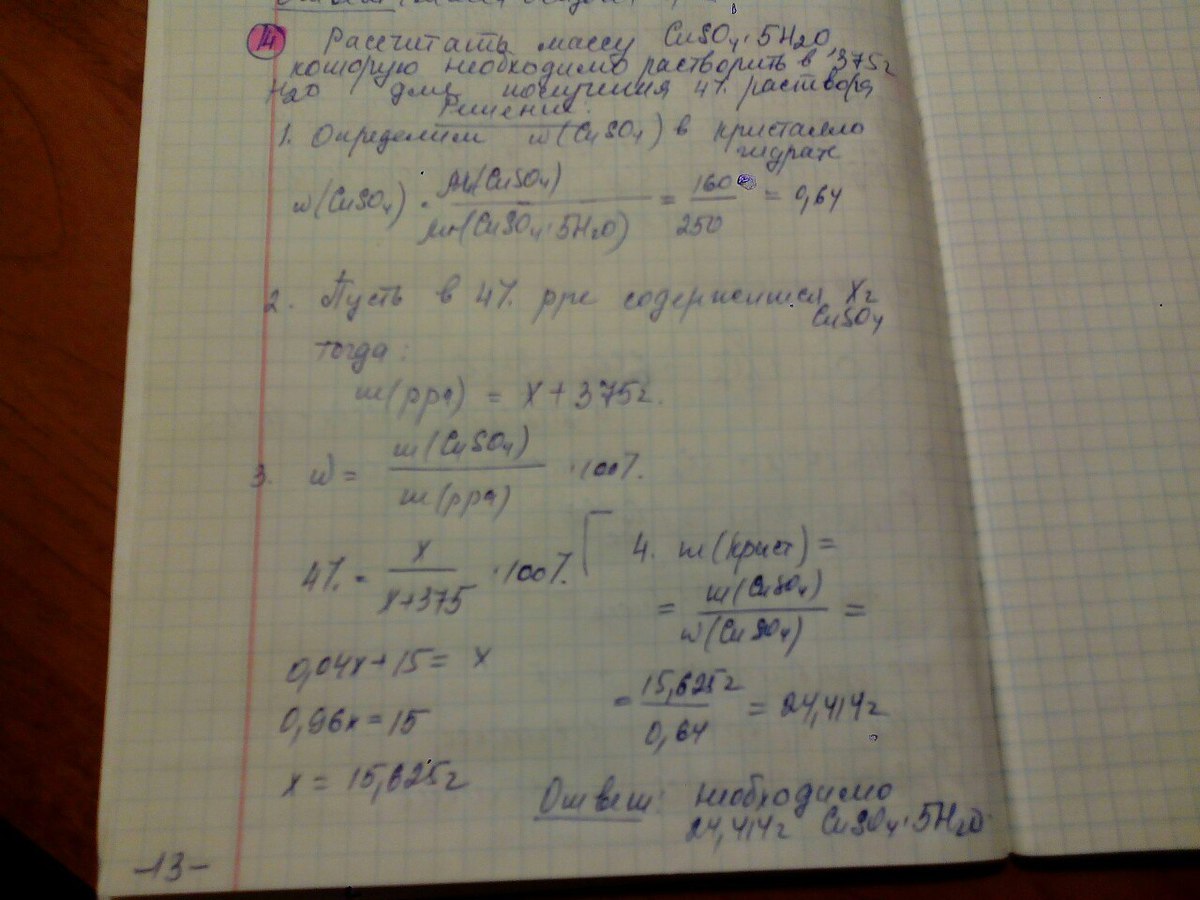 14 Рассчитать массу CuSO4·5H2O,
которую необходимо растворить в 375г
H2O для получения 4% раствора
Решение:
1. Определим w(CuSO4) в кристалло
гидрате
w(CuSO4) = Mr(CuSO4) / Mr(CuSO4·5H2O) = 160 / 250 = 0,64
2. Пусть в 4% рре содержится Xг
CuSO4
тогда:
m(рра) = X + 375г.
3. w = m(CuSO4) / m(рра) ·100%.
4% = x / x+375 ·100%.
0,04x+15 = x
0,96x = 15
x = 15,625г
4. m(крист) =
= m(CuSO4) / w(CuSO4) =
= 15,625г / 0,64 = 24,414г
Ответ: необходимо
24,414г CuSO4·5H2O
-13-